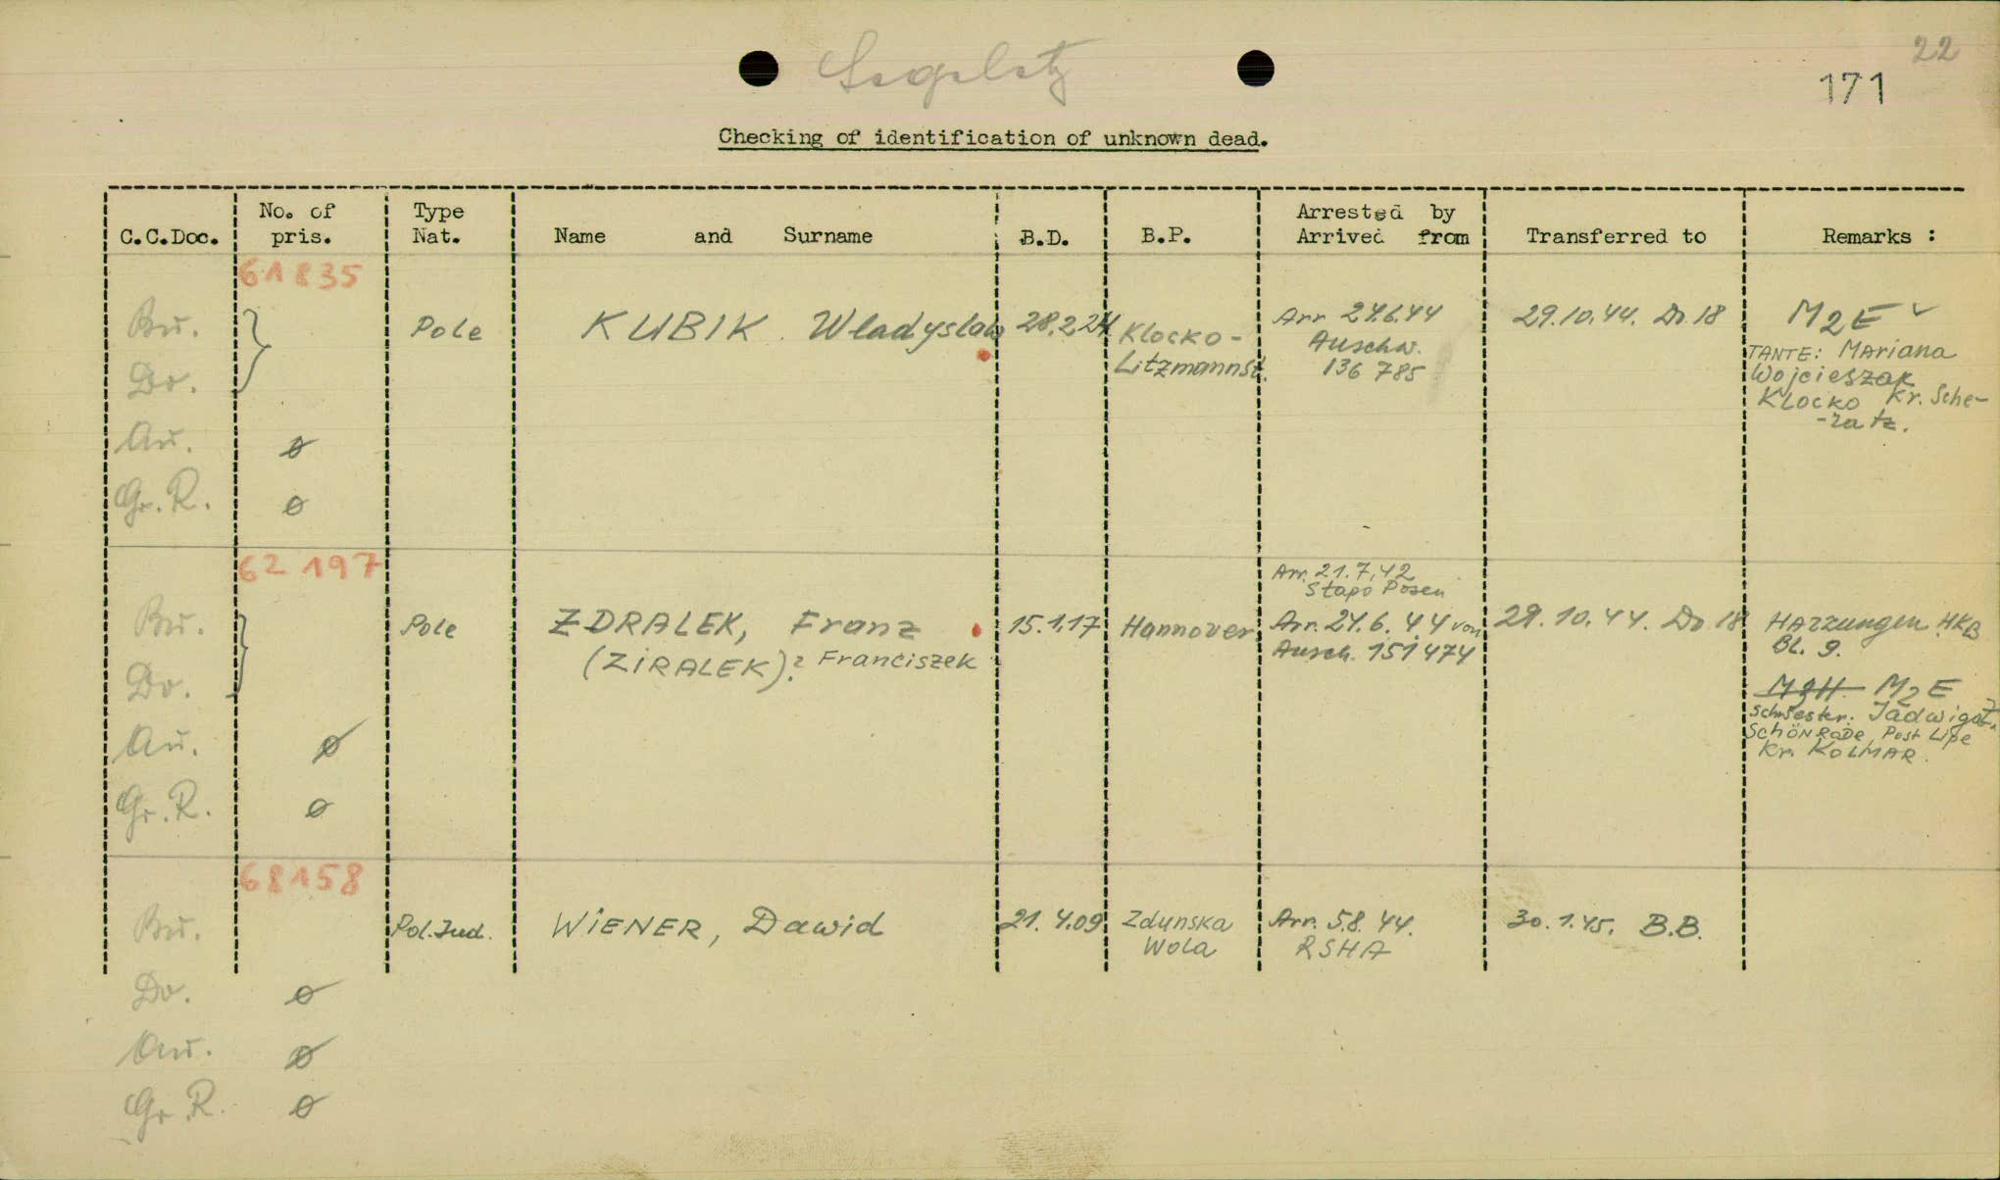 22
171
Checking of identification of unknown dead.
C.C.Doc. No. of pris. Type Nat. Name and Surname B.D. B.P. Arrested by Arrived from Transferred to Remarks :
61835
Bu. Pole KUBIK Wladyslaw 28.2.24 Klocko- Arr 24.6.44 29.10.44. Do 18 M2E
Litzmannst. Auschw.
136 785
TANTE: Mariana
Wojcieszak
Klocko Kr. Sche-
-ratz.
Do.
Au. ø
Gr. R. ø
62 197
Arr. 21.7.42
Stapo Posen
Bu. Pole ZDRALEK, Franz 15.1.17 Hannover Arr. 24.6.44 von 29.10.44. Do 18 Harzungen HKB
(ZiRALEK)? Franciszek Ausch. 151474 Bl. 9.
Do. M2E
Schwester: Jadwiga Z.
SCHÖNRODE Post Lipe
Kr. KOLMAR.
Au. ø
Gr. R. ø
68158
Bu. Pol. Jud. WiENER, Dawid 21.4.09 Zdunska Arr. 5.8.44. 30.1.45. B.B.
Wola RSHA
Do. ø
Au. ø
Gr. R. ø